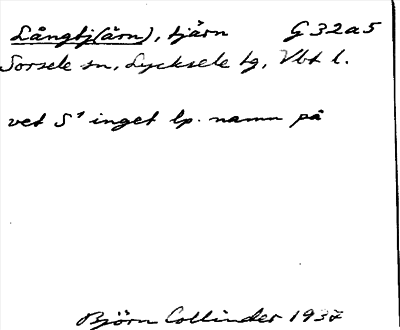 Långtj(ärn), tjärn G 32a5
Sorsele sn, Lycksele tg, Vbt l.
vet S¹ inget lp. namn på
Björn Collinder 1937